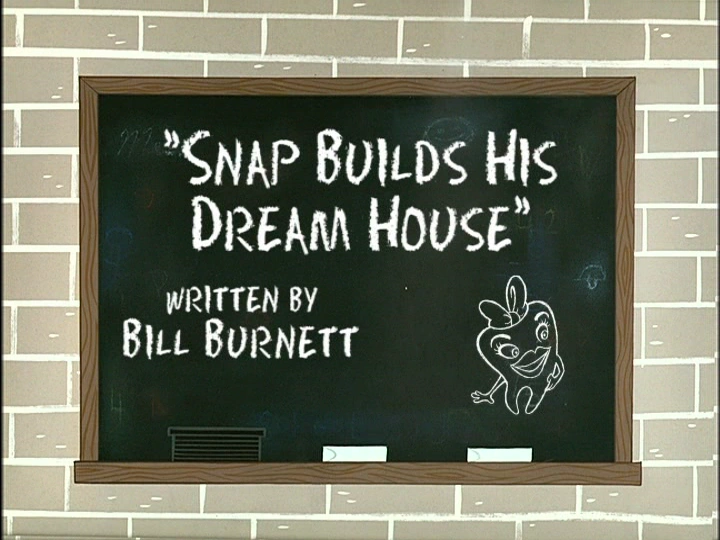 "Snap Builds His
Dream House"
written by
Bill Burnett